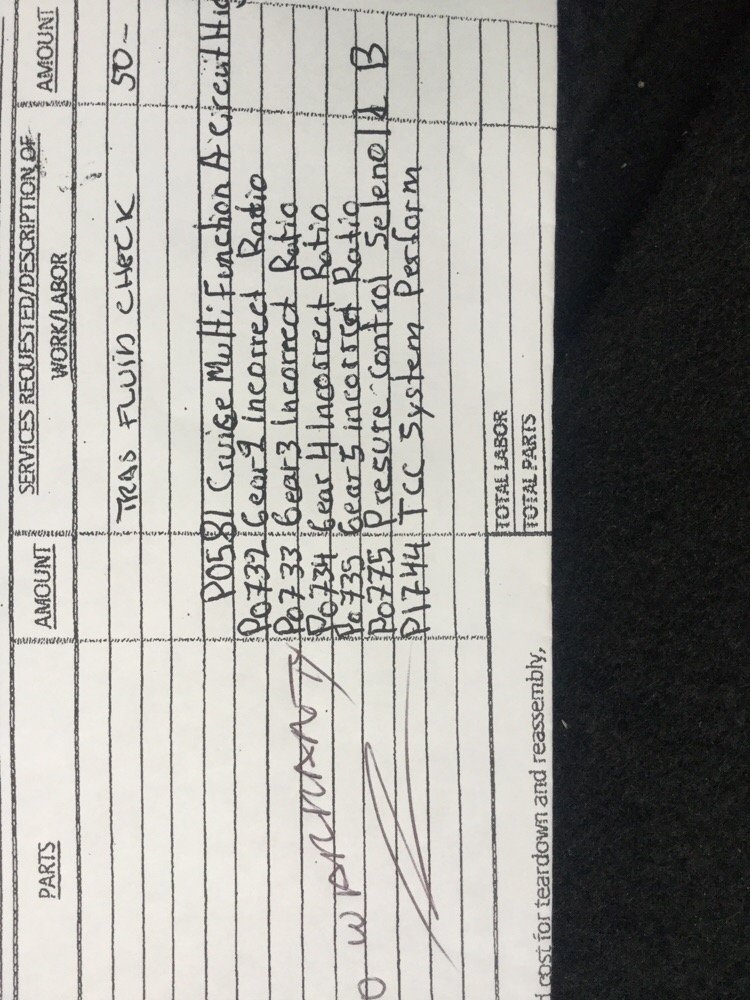 PARTS
AMOUNT
SERVICES REQUESTED/DESCRIPTION OF
WORK/LABOR
AMOUNT
TRAS FLUID CHECK 50-
P0581 Cruise Multi Function A circuit Hig
P0732 Gear 2 Incorrect Ratio
P0733 Gear 3 Incorrect Ratio
P0734 Gear 4 Incorrect Ratio
P0735 Gear 5 incorrect Ratio
P0775 Presure control Selenoid B
P1744 TCC System Perform
O WARRANTY
TOTAL LABOR
TOTAL PARTS
cost for teardown and reassembly,